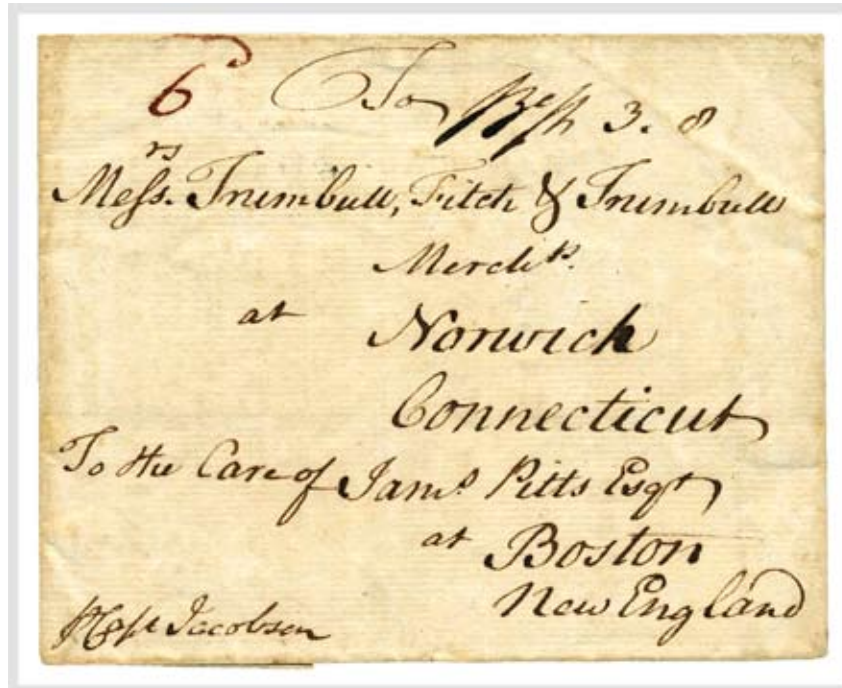 6 To 3. 8
Messrs. Trumbull, Fitch & Trumbull
Merchts.
at Norwich
Connecticut
To the Care of Jams Pitts Esqr
at Boston
New England
Capt Jacobson